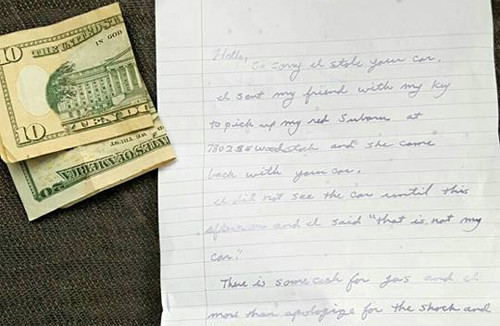 10
THE UNITED S
IN GOD
10
TEN D
WE TRUST
ES OF AMERICA
Hello,
So sorry I stole your car.
I sent my friend with my key
to pick up my red Subaru at
7802 SE Woodstock and she came
back with your car.
I did not see the car until this
afternoon and I said "that is not my
car."
There is some cash for gas and I
more than apologize for the shock and